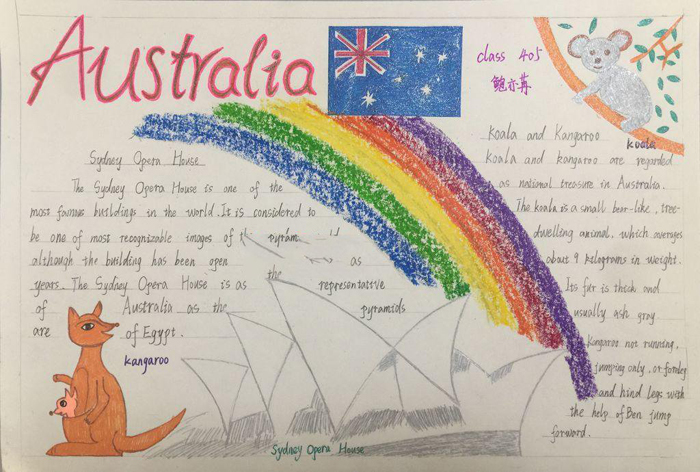 Australia
class 405
Sydney Opera House
The Sydney Opera House is one of the
most famous buildings in the world. It is considered to
be one of most recognizable images of
although the building has been open as
years. The Sydney Opera House is as the representative
of Australia as the pyramids
are of Egypt.
kangaroo
Sydney Opera House
koala
Koala and Kangaroo
koala and kangaroo are regarded
as national treasure in Australia.
The koala is a small bear-like, tree-
dwelling animal, which averages
about 9 kilograms in weight.
Its fur is thick and
usually ash gray.
Kangaroo not running,
jumping only, or
and hind legs with
the help of Ben jump
forward.